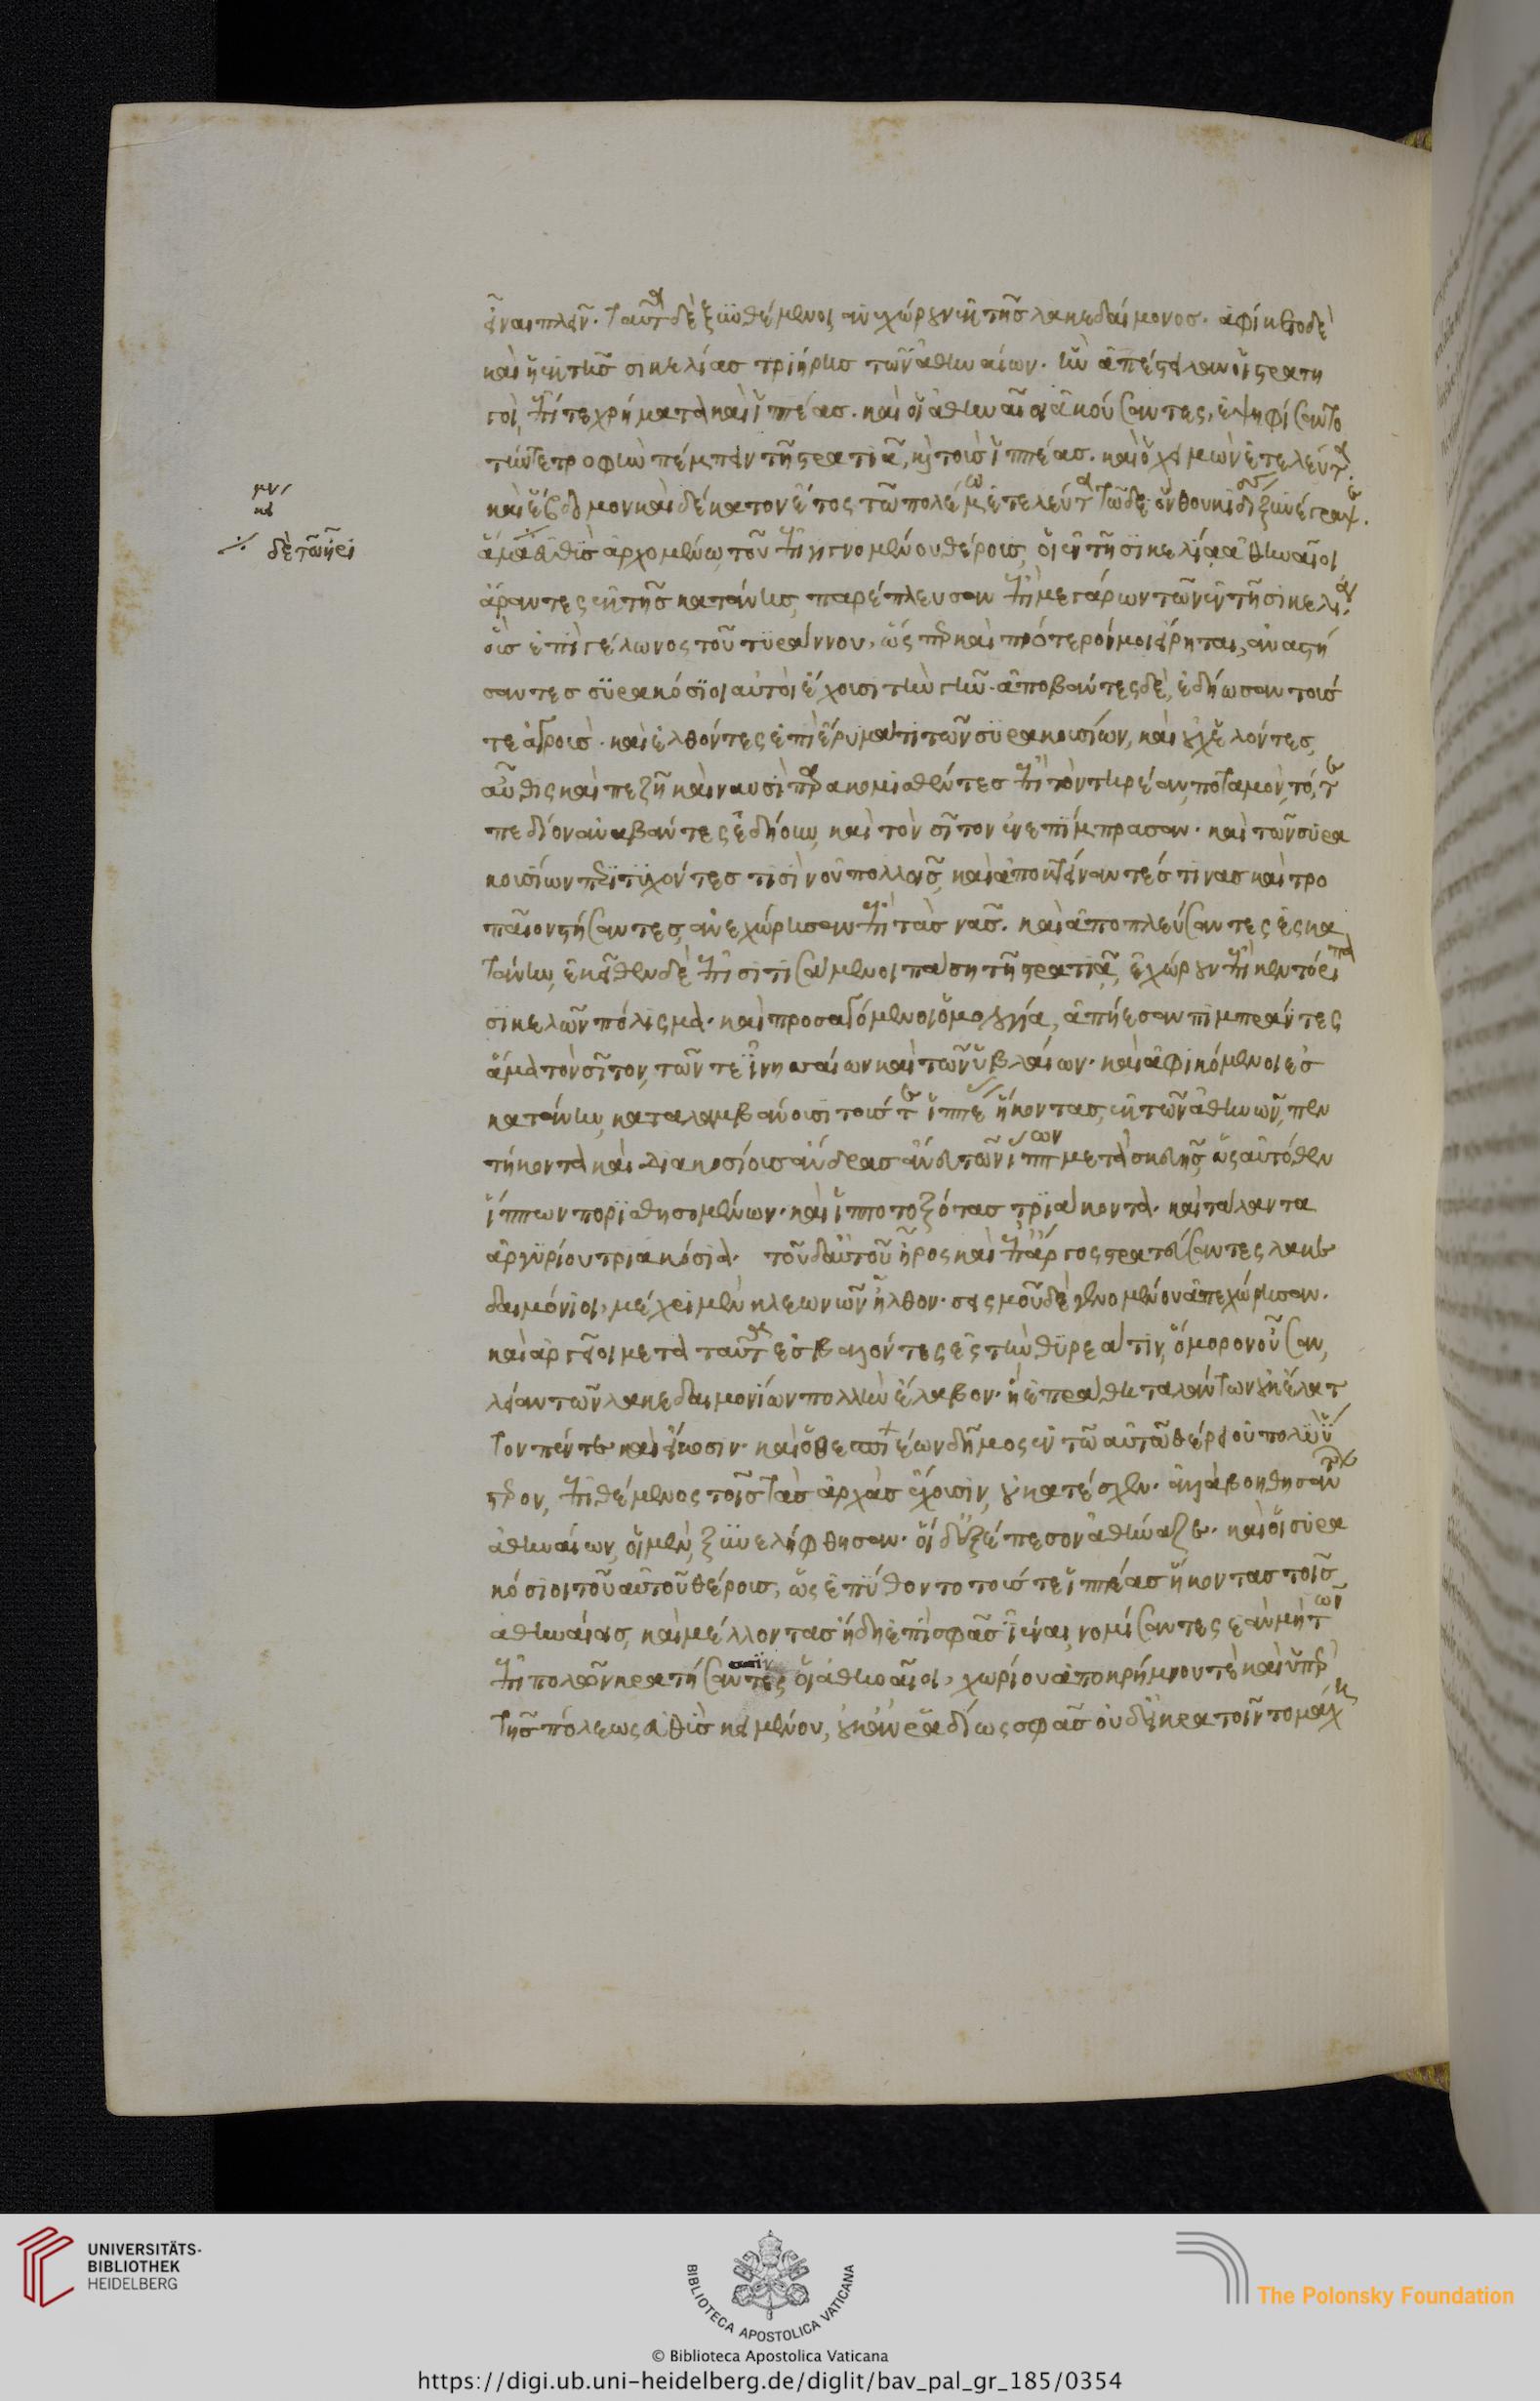 εἶναι πλεῖν. ταῦτα δὲ ξυνθέμενοι ἀνεχώρουν ἐκ τῆς λακεδαίμονος. ἀφίκετο δὲ
καὶ ἡ ἐκ τῆς σικελίας τριήρης τῶν ἀθηναίων. ἣν ἀπέστειλαν οἱ στρατη
γοὶ, ἐπί τε χρήματα καὶ ἱππέας. καὶ οἱ ἀθηναῖοι ἀκούσαντες, ἐψηφίσαντο
τήν τε τροφὴν πέμπειν τῇ στρατιᾷ, καὶ τοὺς ἱππέας. καὶ ὁ χειμὼν ἐτελεύτα
καὶ ἕβδομον καὶ δέκατον ἔτος τῶ πολέμω ἐτελεύτα τῶδε ὃν θουκυδίδης ξυνέγραψε.
δὲ τῶ ἦρι
ἅμα εὐθὺς ἀρχομένω τοῦ ἐπιγιγνομένου θέρους, οἱ ἐν τῇ σικελίᾳ ἀθηναῖοι
ἄραντες ἐκ τῆς κατάνης, παρέπλευσαν ἐπὶ μεγάρων τῶν ἐν τῇ σικελίᾳ.
οὓς ἐπὶ γέλωνος τοῦ τυράννου, ὥσπερ καὶ πρότερόν μοι εἴρηται, ἀναστή
σαντες συρακόσιοι αὐτοὶ ἔχουσι τὴν γῆν. ἀποβάντες δὲ, ἐδήωσαν τούς
τε ἀγροὺς. καὶ ἐλθόντες ἐπὶ ἔρυμά τι τῶν συρακουσίων, καὶ οὐχ ἑλόντες,
αὖθις καὶ πεζῇ καὶ ναυσὶ παρακομισθέντες ἐπὶ τὸν τηρέαν ποταμὸν, τό τε
πεδίον ἀναβάντες ἐδήουν, καὶ τὸν σῖτον ἐνεπίμπρασαν. καὶ τῶν συρα
κουσίων περιτυχόντες τισὶν οὐ πολλοῖς, καὶ ἀποκτείναντές τινας καὶ τρο
παῖον στήσαντες, ἀνεχώρησαν ἐπὶ τὰς ναῦς. καὶ ἀποπλεύσαντες ἐς κα
τάνην, ἐκεῖθεν δὲ ἐπισιτισάμενοι πάσῃ τῇ στρατιᾷ, ἐχώρουν ἐπὶ κεντόριπα
σικελῶν πόλισμα. καὶ προσαγόμενοι ὁμολογία, ἀπήεσαν πιμπράντες
ἅμα τὸν σῖτον, τῶν τε ἰνησαίων καὶ τῶν ὑβλαίων. καὶ ἀφικόμενοι ἐς
κατάνην, καταλαμβάνουσι τούς τε ἱππέας ἥκοντας, ἐκ τῶν ἀθηνῶν, πεν
τήκοντα καὶ διακοσίους ἄνδρας ἄνευ τῶν ἵππων μετὰ σκευῆς, ὡς αὐτόθεν
ἵππων πορισθησομένων. καὶ ἱπποτοξότας τριάκοντα. καὶ τάλαντα
ἀργυρίου τριακόσια. τοῦ δ' αὐτοῦ ἦρος καὶ ἐπ' ἄργος στρατεύσαντες λακε
δαιμόνιοι, μέχρι μὲν κλεωνῶν ἦλθον. σεισμοῦ δὲ γενομένου ἀπεχώρησαν.
καὶ ἀργεῖοι μετὰ ταῦτα ἐσβαλόντες ἐς τὴν θυρεάτιν, ὅμορον οὖσαν,
λείαν τῶν λακεδαιμονίων πολλὴν ἔλαβον. ἣ ἐπράθη ταλάντων οὐκ ἔλατ
τον πέντε καὶ εἴκοσιν. καὶ ὁ θεσπιέων δῆμος ἐν τῶ αὐτῶ θέρει οὐ πολὺ ὕ
τερον, ἐπιθέμενος τοῖς τὰς ἀρχὰς ἔχουσιν, οὐ κατέσχεν.
ἀθηναίων, οἱ μὲν, ξυνελήφθησαν. οἱ δ' ἐξέπεσον ἀθήναζε. καὶ οἱ συρα
κόσιοι τοῦ αὐτοῦ θέρους, ὡς ἐπύθοντο τούς τε ἱππέας ἥκοντας τοῖς
ἀθηναίοις, καὶ μέλλοντας ἤδη ἐπὶ σφᾶς ἰέναι, νομίσαντες ἐὰν μὴ τῶν
ἐπιπολῶν κρατήσωσιν οἱ ἀθηναῖοι, χωρίου ἀποκρήμνου τὲ καὶ ὑπὲρ
τῆς πόλεως εὐθὺς κειμένου, οὐκ ἂν ῥᾳδίως σφᾶς οὐδ' εἰ κρατοῖντο μάχῃ
UNIVERSITÄTS-
BIBLIOTHEK
HEIDELBERG
BIBLIOTECA APOSTOLICA VATICANA
The Polonsky Foundation
© Biblioteca Apostolica Vaticana
https://digi.ub.uni-heidelberg.de/diglit/bav_pal_gr_185/0354